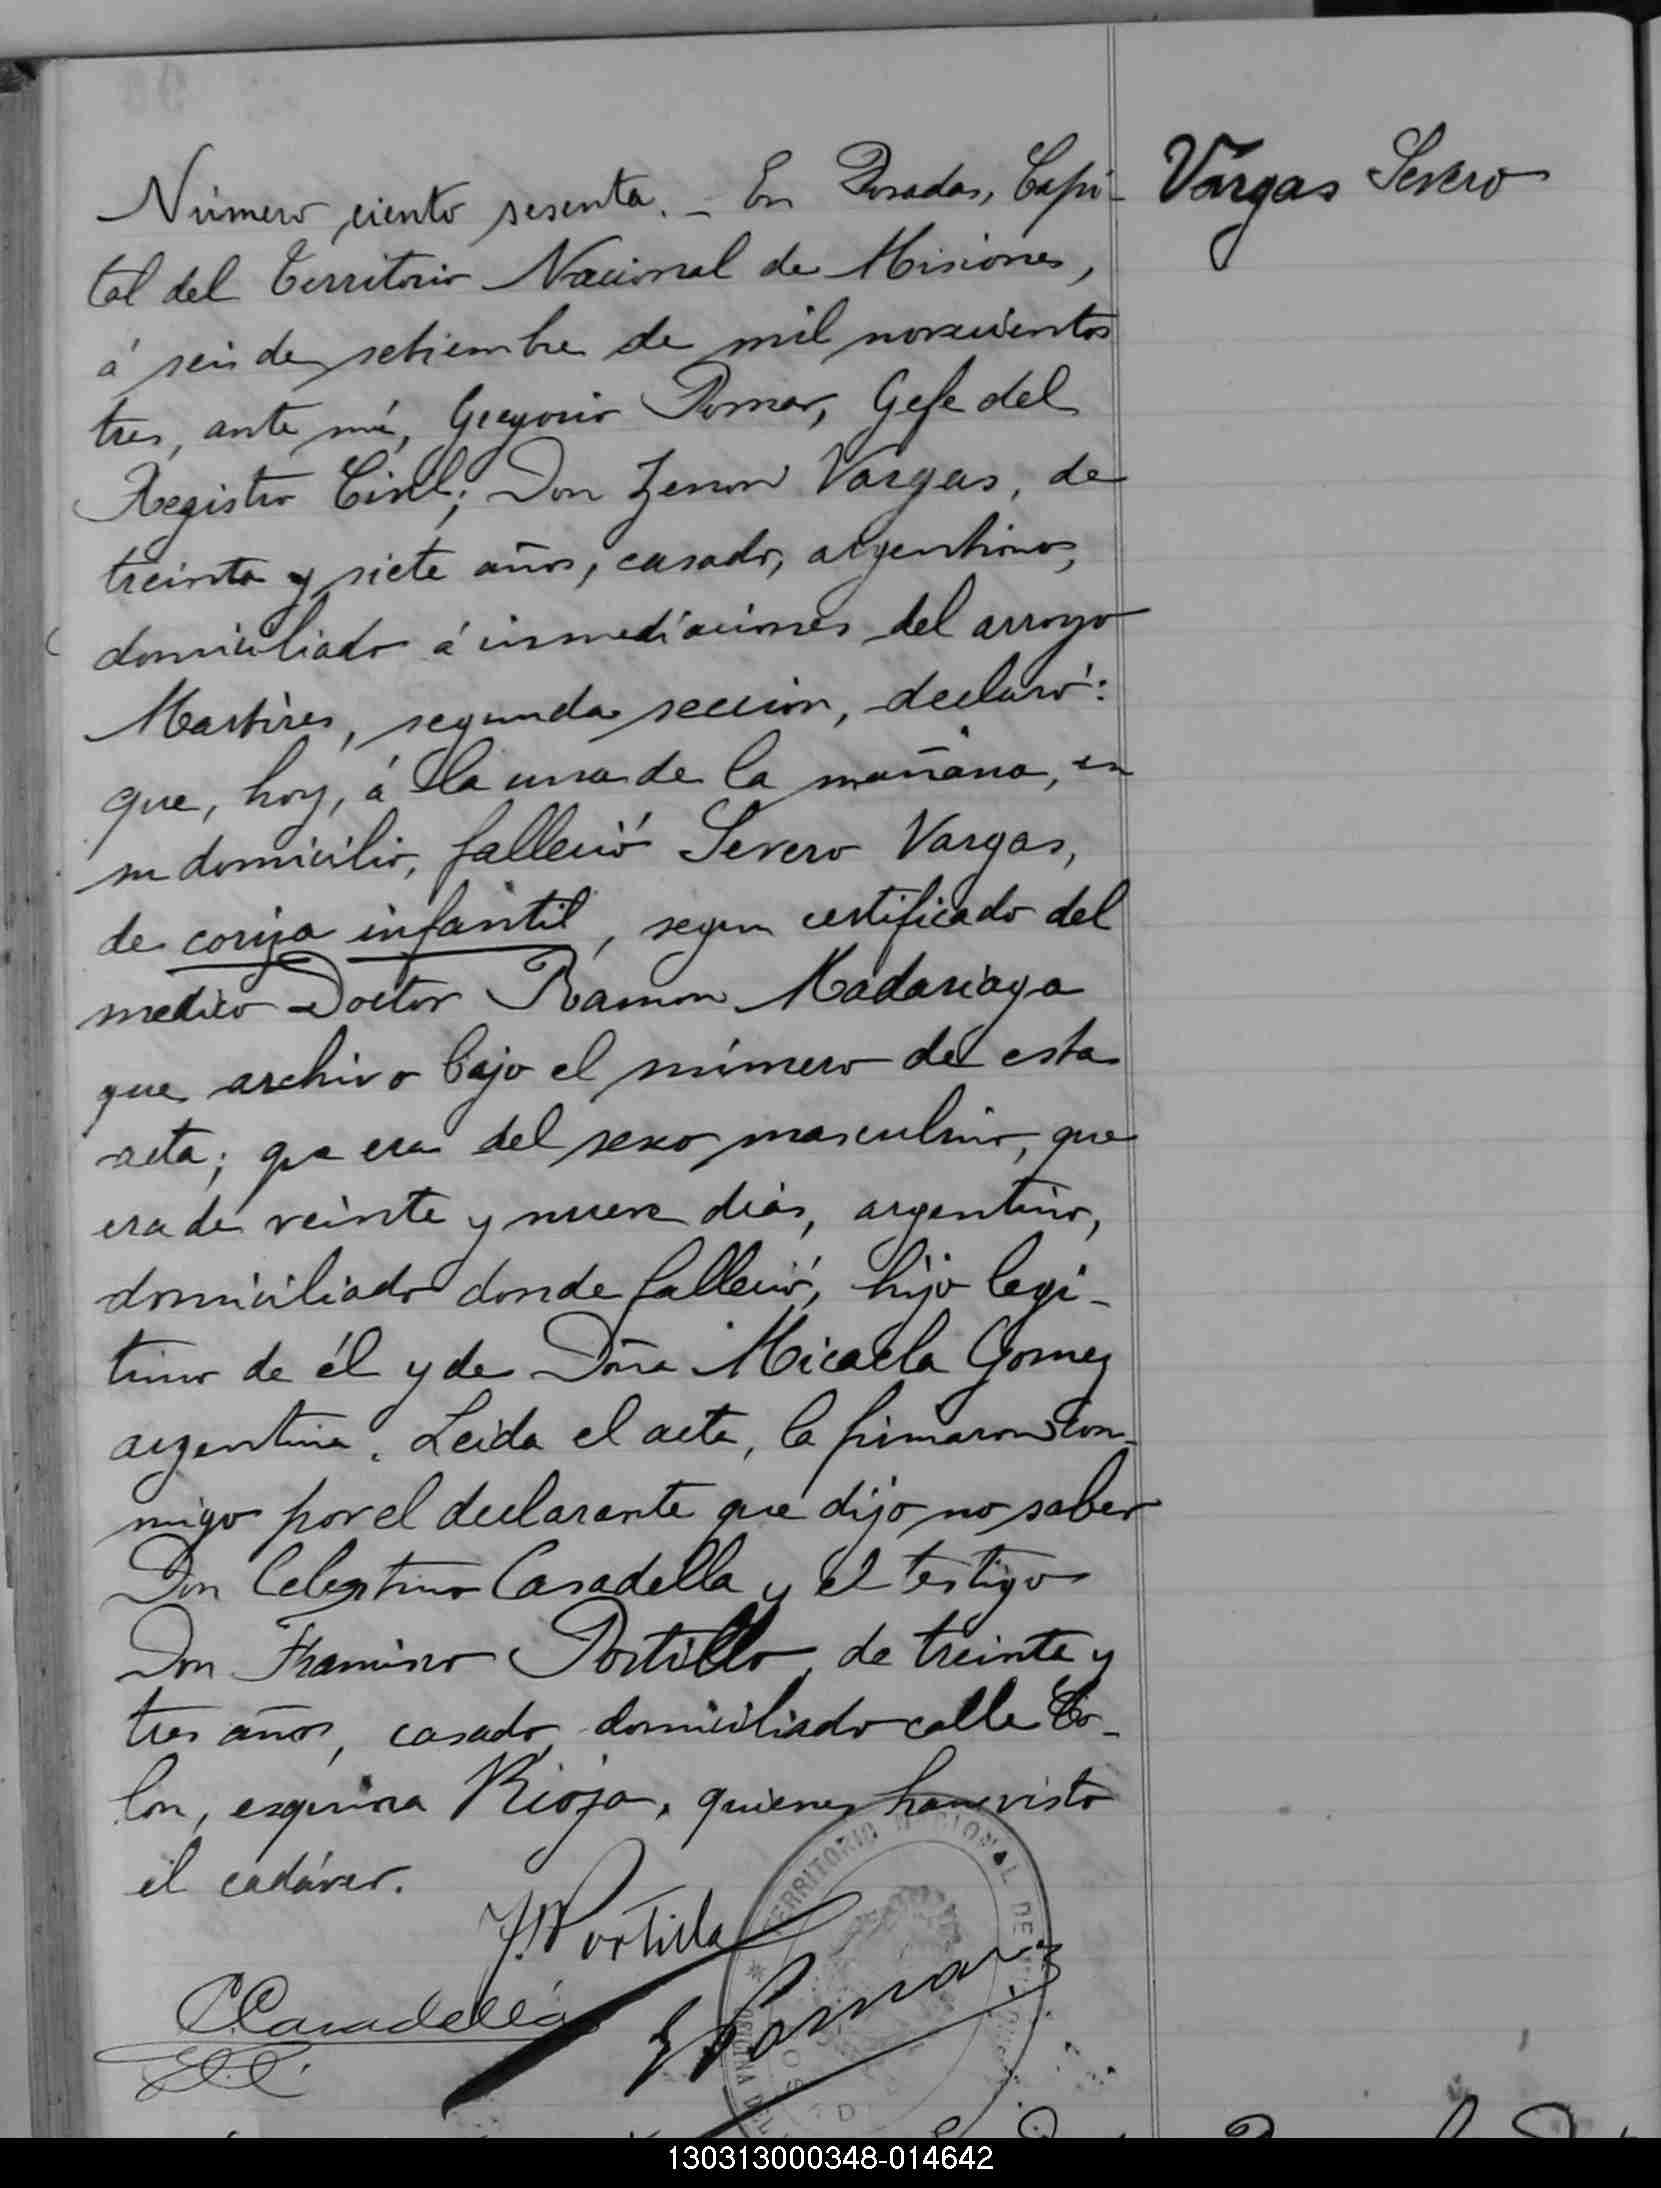 Vargas Severo
Número ciento sesenta. - En Posadas, Capi-
tal del Territorio Nacional de Misiones,
á seis de setiembre de mil novecientos
tres, ante mí, Gregorio Pomar, Gefe del
Registro Civil; Don Zenon Vargas, de
treinta y siete años, casado, argentino,
domiciliado á inmediaciones del arroyo
Martires, segunda seccion, declaró:
que, hoy, á la una de la mañana, en
su domicilio, falleció Severo Vargas,
de coriza infantil, segun certificado del
medico Doctor Ramon Madariaga
que archivo bajo el número de esta
acta; que era del sexo masculino, que
era de veinte y nueve dias, argentino,
domiciliado donde falleció, hijo legi-
timo de él y de Doña Micaela Gomez
argentina. Leida el acta, la firmaron con-
migo por el declarante que dijo no saber
Don Celestino Casadella y el testigo
Don Framiro Portillo, de treinta y
tres años, casado, domiciliado calle Co-
lon, esquina Rioja, quienes han visto
el cadáver.
F. Portillo
C Casadella
G Pomar
TERRITORIO NACIONAL DE
OFICINA DEL
130313000348-014642